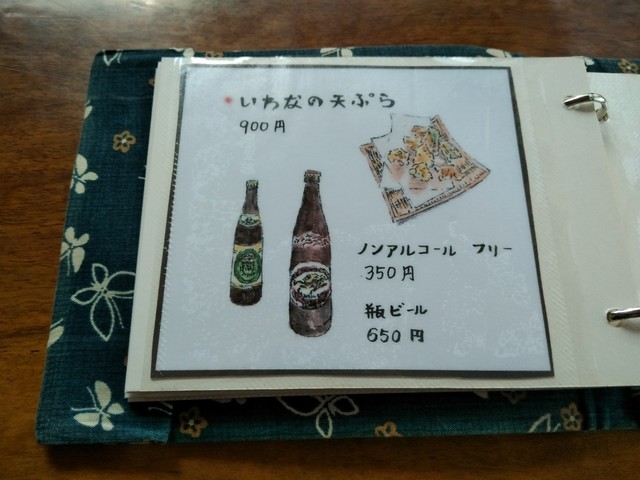 ・いわなの天ぷら
900円
ノンアルコール フリー
350円
瓶ビール
650円